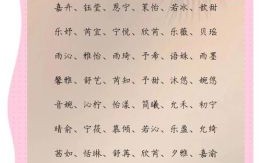 嘉卉、钰莹、思宁、茉怡、若冰、歆甜
乐妤、芮宜、宁悦、欣芮、乐薇、贝瑶
雨沁、雅怡、雨琦、予希、语姝、雨墨
馨雅、舒艺、芮知、予甜、沐悠、婉悠
音婉、沁柠、忆潇、简曦、允禾、初宁
晴俞、宁筱、慕倾、若沁、乐盈、允绮
茜如、恬琳、舒苒、欣芮、夕雅、嘉渝